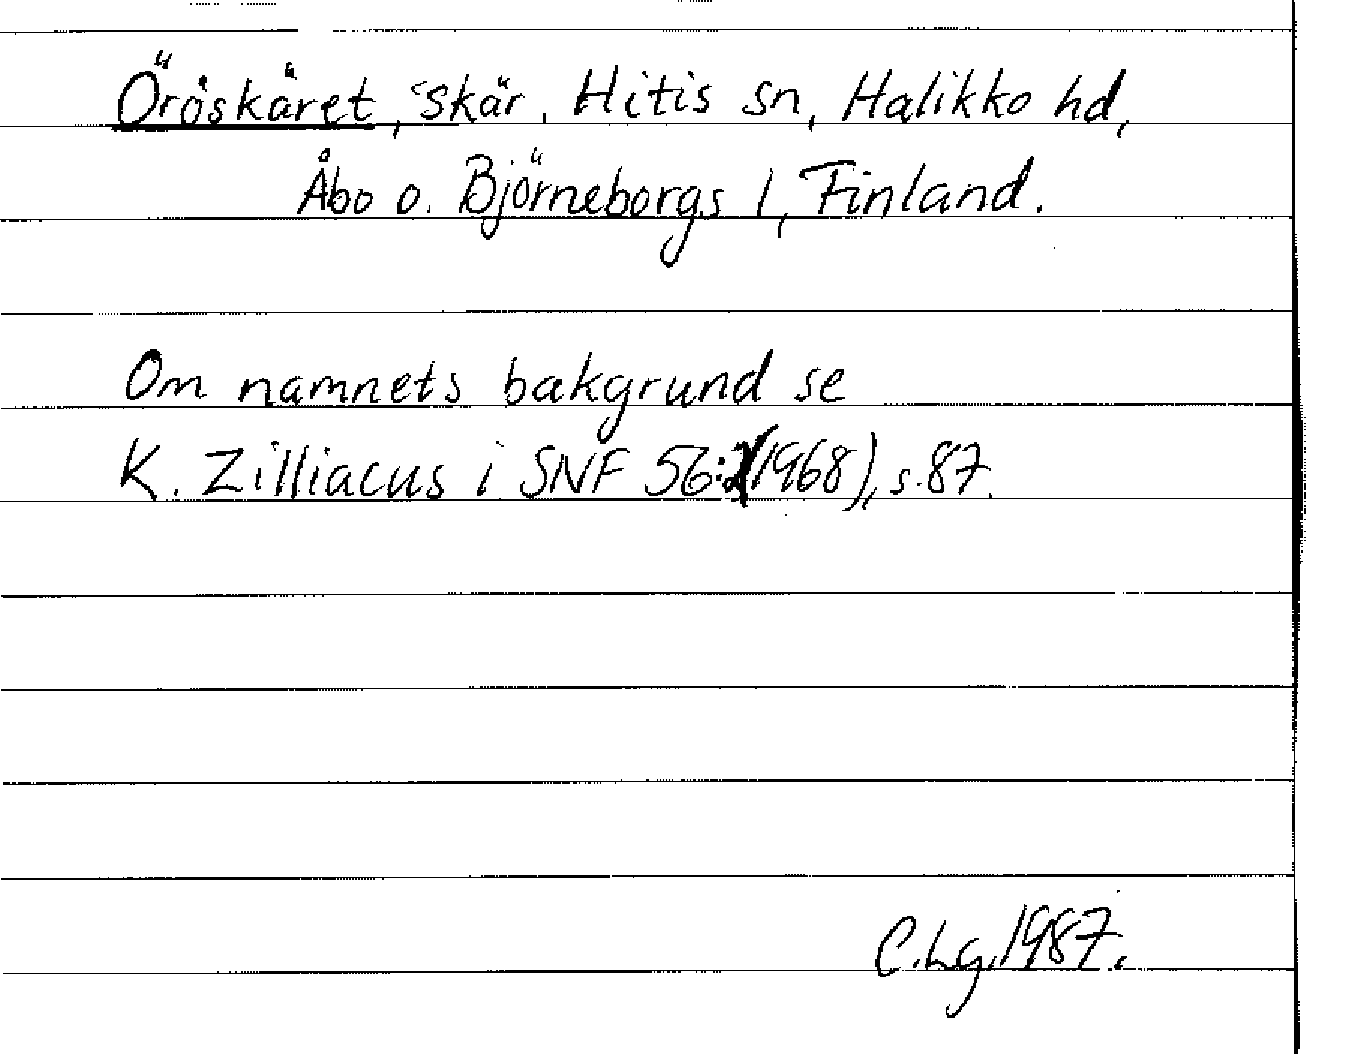 Öröskäret, skär, Hitis sn, Halikko hd,
Åbo o. Björneborgs l, Finland.
Om namnets bakgrund se
K. Zilliacus i SNF 56:2(1968), s. 87.
C.Lg.1987.